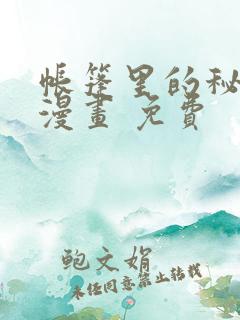 帐篷里的秘
漫畫 免費
鲍文娟
未经同意禁止转载